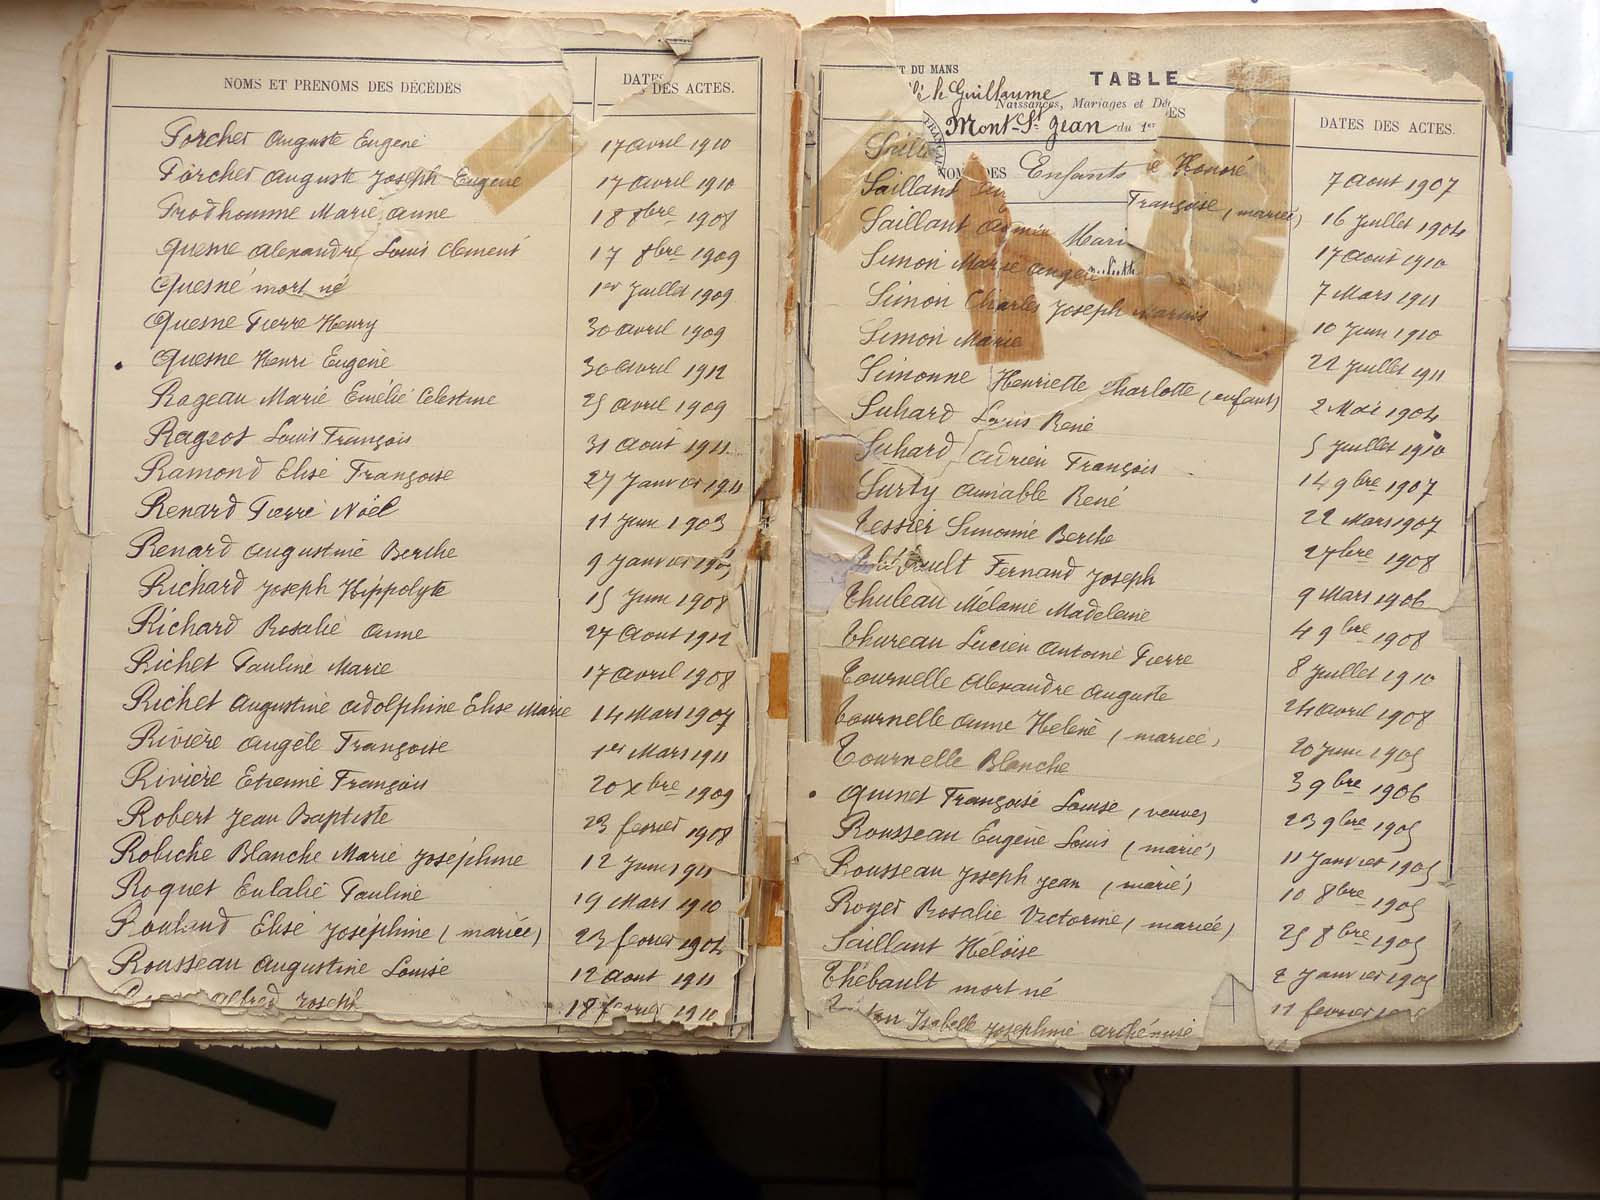 NOMS ET PRENOMS DES DÉCÉDÉS DATES DES ACTES.
Porcher Auguste Eugène 17 avril 1910
Porcher Auguste Joseph Eugène 17 avril 1910
Prodhomme Marie Anne 18 8bre 1908
Quesne Alexandre Louis Clement 17 8bre 1909
Quesné mort né 1er Juillet 1909
Quesne Pierre Henry 30 avril 1909
Quesne Henri Eugène 30 avril 1912
Rageau Marie Emélie Celestine 25 avril 1909
Ragzot Louis François 31 Aout 1911
Ramond Elise Françoise 27 Janvier 1911
Renard Pierre Noël 11 Juin 1903
Renard Augustine Berthe 9 Janvier
Richard Joseph Hippolyte 15 Juin 1908
Richard Rosalie Anne 27 Aout 1912
Richet Pauline Marie 17 avril 1908
Richet Augustine Adolphine Elise Marie 14 Mars 1907
Rivière Angèle Françoise 1er Mars 1911
Rivière Etienne François 20 Xbre 1909
Robert Jean Baptiste 23 fevrier 1908
Robiche Blanche Marie Joséphine 12 Juin 1911
Roquet Eulalie Pauline 19 Mars 1910
Elise Joséphine (mariée) 23 fevrier
Rousseau Augustine Louise 12 Aout 1911
Alfred Joseph 18 fevrier 1910
T DU MANS
TABLE
le Guillaume
Naissances, Mariages et Dé ES
Mont-St Jean du 1er
DATES DES ACTES.
NOM DES Enfants
Honoré 7 Aout 1907
Saillant Françoise (mariée) 16 Juillet 1904
Saillant Mari 17 Aout 1910
Simon Marie Ange 7 Mars 1911
Simon Charles Joseph Marius 10 Juin 1910
Simon Marie 22 Juillet 1911
Simonne Henriette Charlotte (enfant) 2 Mai 1904
Suhard Louis René 5 Juillet 1910
Suhard Adrien François 14 9bre 1907
Surty Aimable René 22 Mars 1907
Tessier Simonne Berthe 2 7bre 1908
Fernand Joseph 9 Mars 1906
Thuleau Mélanie Madeleine 4 9bre 1908
Thureau Lucien Antoine Pierre 8 Juillet 1910
Tournelle Alexandre Auguste 24 avril 1908
Tournelle Anne Helène (mariée) 20 Juin 1905
Tournelle Blanche 3 9bre 1906
Quinet Françoise Louise (veuve) 23 9bre 1905
Rousseau Eugène Louis (marié) 11 Janvier 1905
Rousseau Joseph Jean (marié) 10 8bre 1905
Royer Rosalie Victorine (mariée) 25 8bre 1905
Saillant Héloïse 2 Janvier 1905
Thébault mort né 11 fevrier
Isabelle Josephine